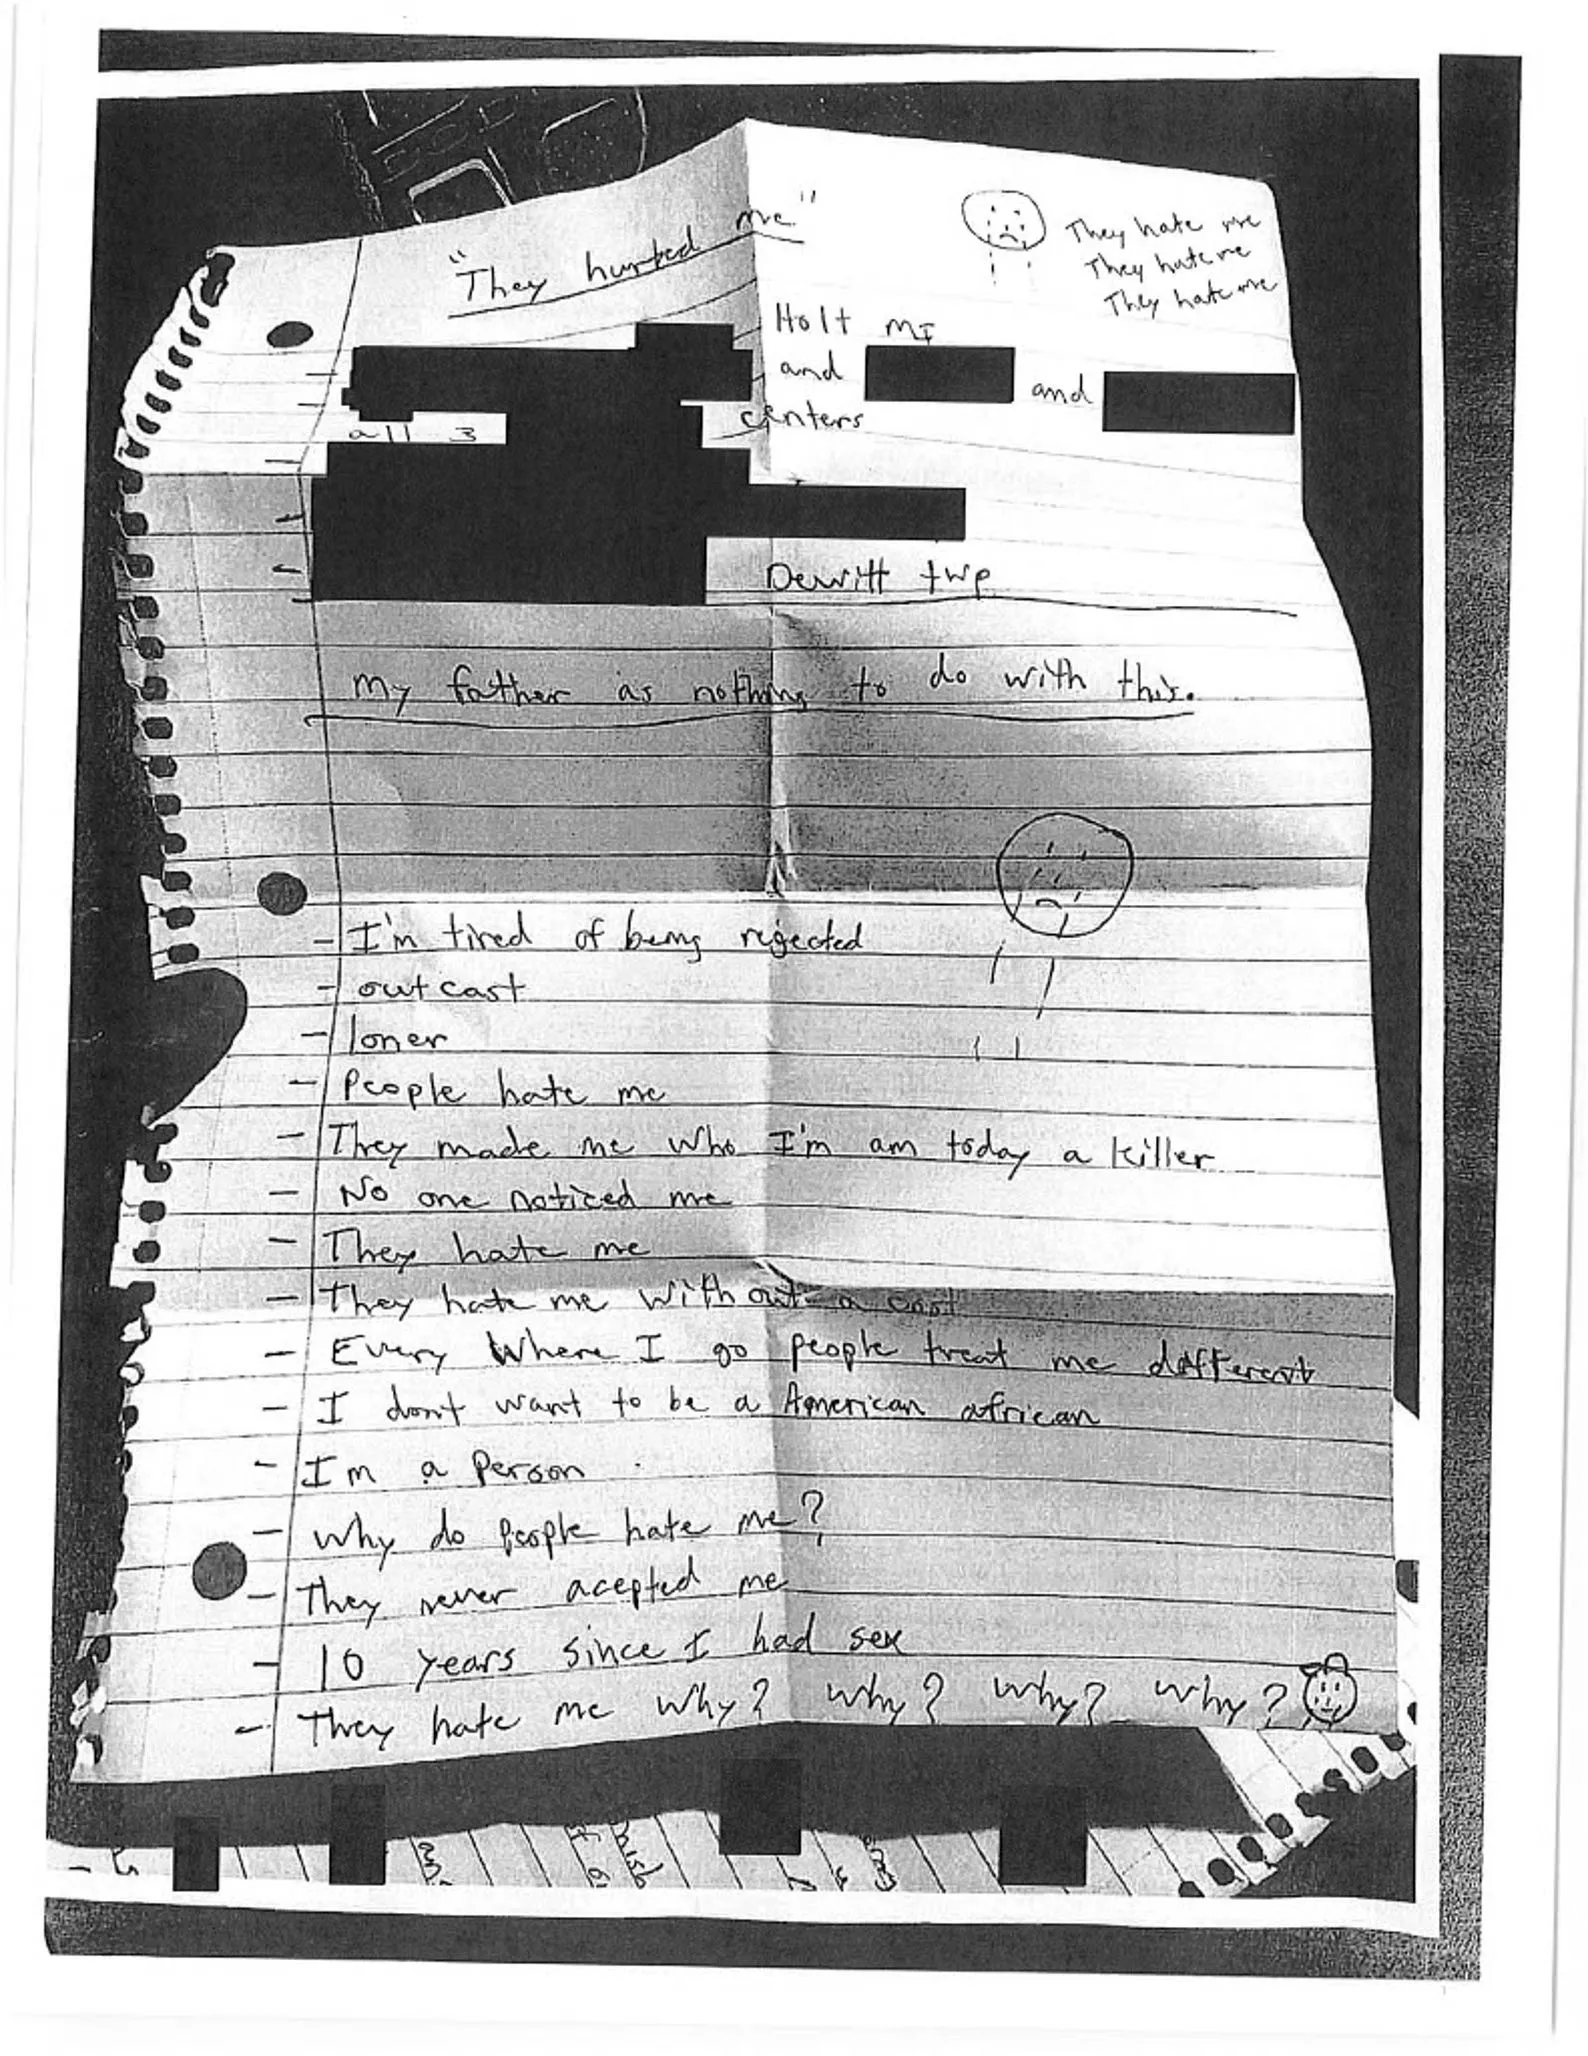 "They hurted me"
They hate me
They hate me
They hate me
Holt MI
and and
all 3 centers
Dewitt twp
My father as nothing to do with this.
- I'm tired of being rejected
- out cast
- loner
- People hate me
- They made me who I'm am today a killer
- No one noticed me
- They hate me
- They hate me without a
- Every Where I go people treat me different
- I don't want to be a American african
- Im a Person
- Why do people hate me?
- They never acepted me
- 10 years since I had sex
- They hate me why? why? why? why?